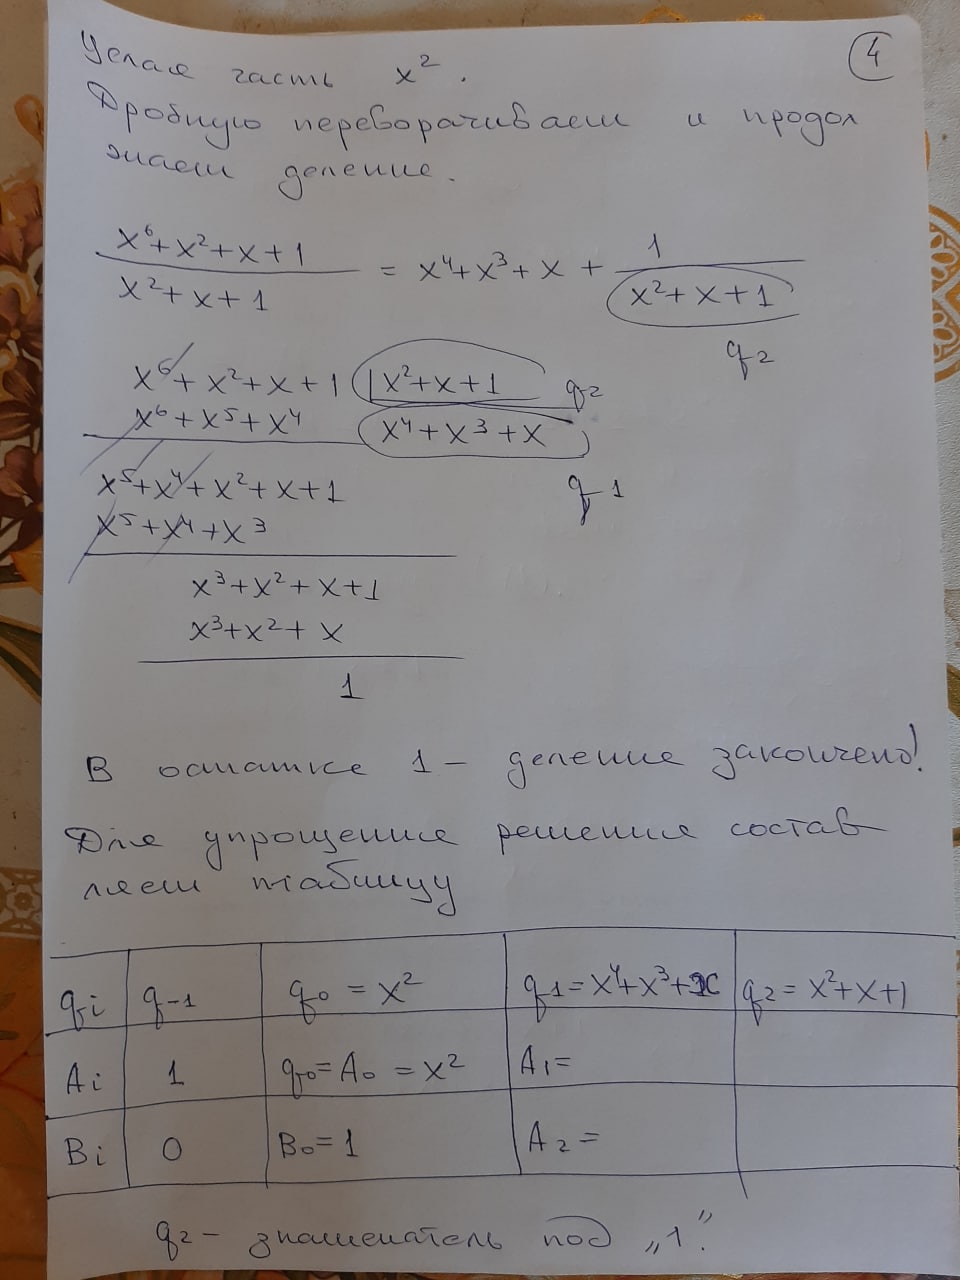 4
Целая часть x².
Дробную переворачиваем и продол
жаем деление.
x⁶+x²+x+1 / x²+x+1 = x⁴+x³+x + 1 / x²+x+1
q2
x⁶+x²+x+1 | x²+x+1 q2
x⁶+x⁵+x⁴ x⁴+x³+x
x⁵+x⁴+x²+x+1 q1
x⁵+x⁴+x³
x³+x²+x+1
x³+x²+x
1
В остатке 1 – деление закончено!
Для упрощения решения состав
ляем таблицу
qi q-1 q0 = x² q1=x⁴+x³+x q2= x²+x+1
Ai 1 q0=A0 = x² A1=
Bi 0 B0=1 A2=
q2 – знаменатель под „1”.